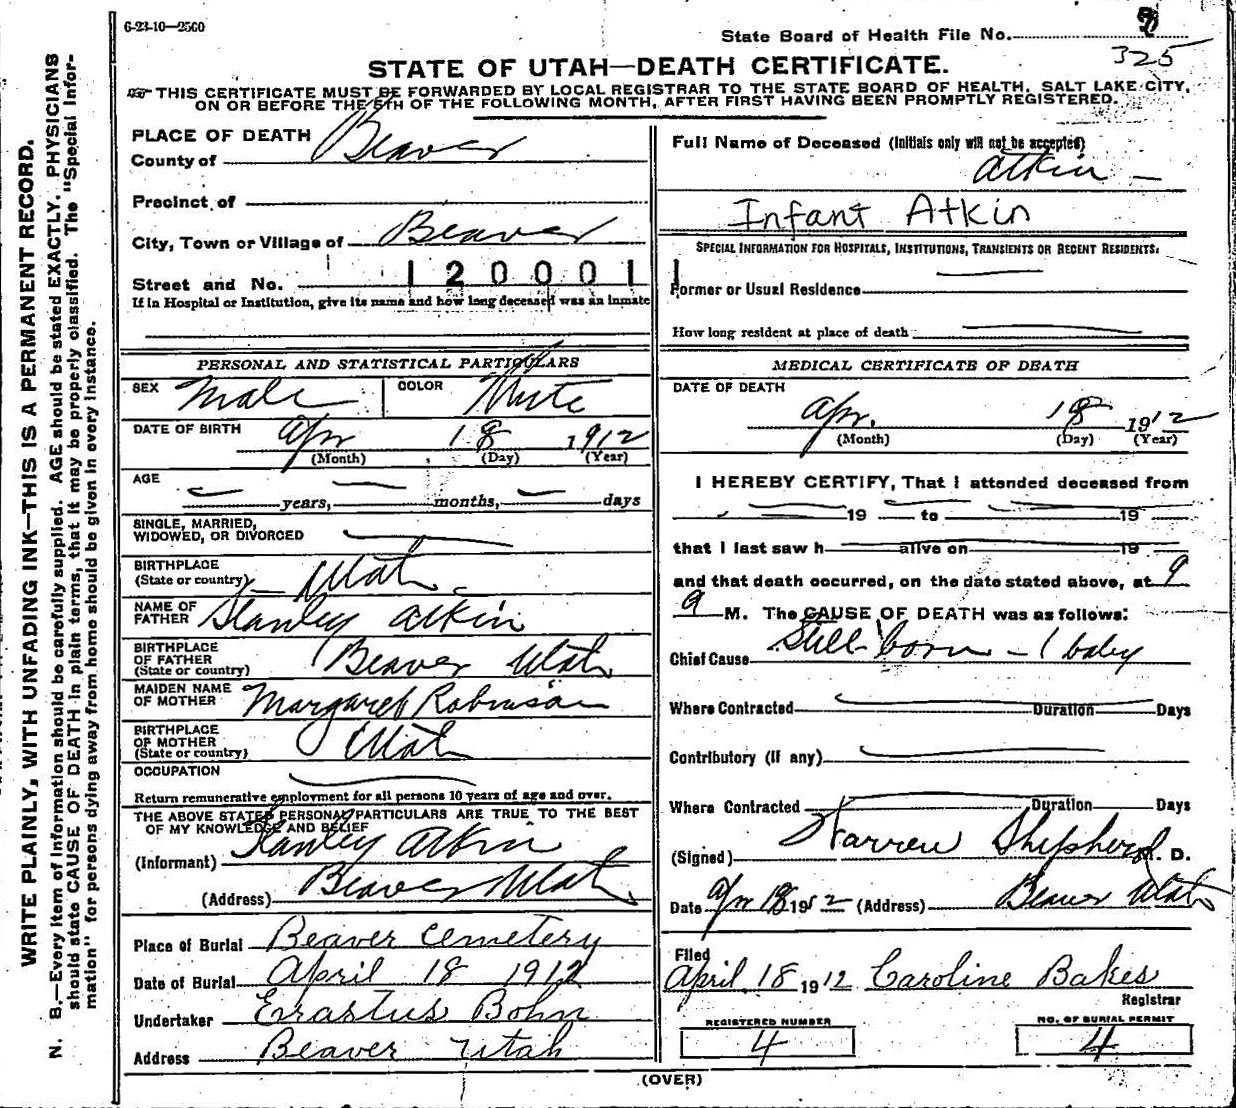 6-23-10—2500
State Board of Health File No.
325
STATE OF UTAH—DEATH CERTIFICATE.
THIS CERTIFICATE MUST BE FORWARDED BY LOCAL REGISTRAR TO THE STATE BOARD OF HEALTH, SALT LAKE CITY,
ON OR BEFORE THE 5TH OF THE FOLLOWING MONTH, AFTER FIRST HAVING BEEN PROMPTLY REGISTERED.
WRITE PLAINLY, WITH UNFADING INK—THIS IS A PERMANENT RECORD.
N. B.—Every item of information should be carefully supplied. AGE should be stated EXACTLY. PHYSICIANS
should state CAUSE OF DEATH in plain terms, that it may be properly classified. The "Special Infor-
mation" for persons dying away from home should be given in every instance.
PLACE OF DEATH
County of Beaver
Precinct of
City, Town or Village of Beaver
Street and No. 1200011
If in Hospital or Institution, give its name and how long deceased was an inmate
PERSONAL AND STATISTICAL PARTICULARS
SEX Male COLOR White
DATE OF BIRTH Apr 18 1912
(Month) (Day) (Year)
AGE
years, months, days
SINGLE, MARRIED,
WIDOWED, OR DIVORCED
BIRTHPLACE
(State or country) Utah
NAME OF
FATHER Stanley Atkin
BIRTHPLACE
OF FATHER
(State or country) Beaver Utah
MAIDEN NAME
OF MOTHER Margaret Robinson
BIRTHPLACE
OF MOTHER
(State or country) Utah
OCCUPATION
Return remunerative employment for all persons 10 years of age and over.
THE ABOVE STATED PERSONAL PARTICULARS ARE TRUE TO THE BEST
OF MY KNOWLEDGE AND BELIEF
(Informant) Stanley Atkin
(Address) Beaver Utah
Place of Burial Beaver Cemetery
Date of Burial April 18 1912
Undertaker Erastus Bohn
Address Beaver Utah
Full Name of Deceased (Initials only will not be accepted)
Atkin —
Infant Atkin
SPECIAL INFORMATION FOR HOSPITALS, INSTITUTIONS, TRANSIENTS OR RECENT RESIDENTS:
Former or Usual Residence
How long resident at place of death
MEDICAL CERTIFICATE OF DEATH
DATE OF DEATH
Apr. 18 1912
(Month) (Day) (Year)
I HEREBY CERTIFY, That I attended deceased from
19 to 19
that I last saw h alive on 19
and that death occurred, on the date stated above, at 9
a M. The CAUSE OF DEATH was as follows:
Chief Cause Still born — 1 baby
Where Contracted Duration Days
Contributory (if any)
Where Contracted Duration Days
(Signed) Warren Shepherd M. D.
Date Apr 18 1912 (Address) Beaver Utah
Filed
April 18 1912 Caroline Bakes
Registrar
REGISTERED NUMBER
4
NO. OF BURIAL PERMIT
4
(OVER)